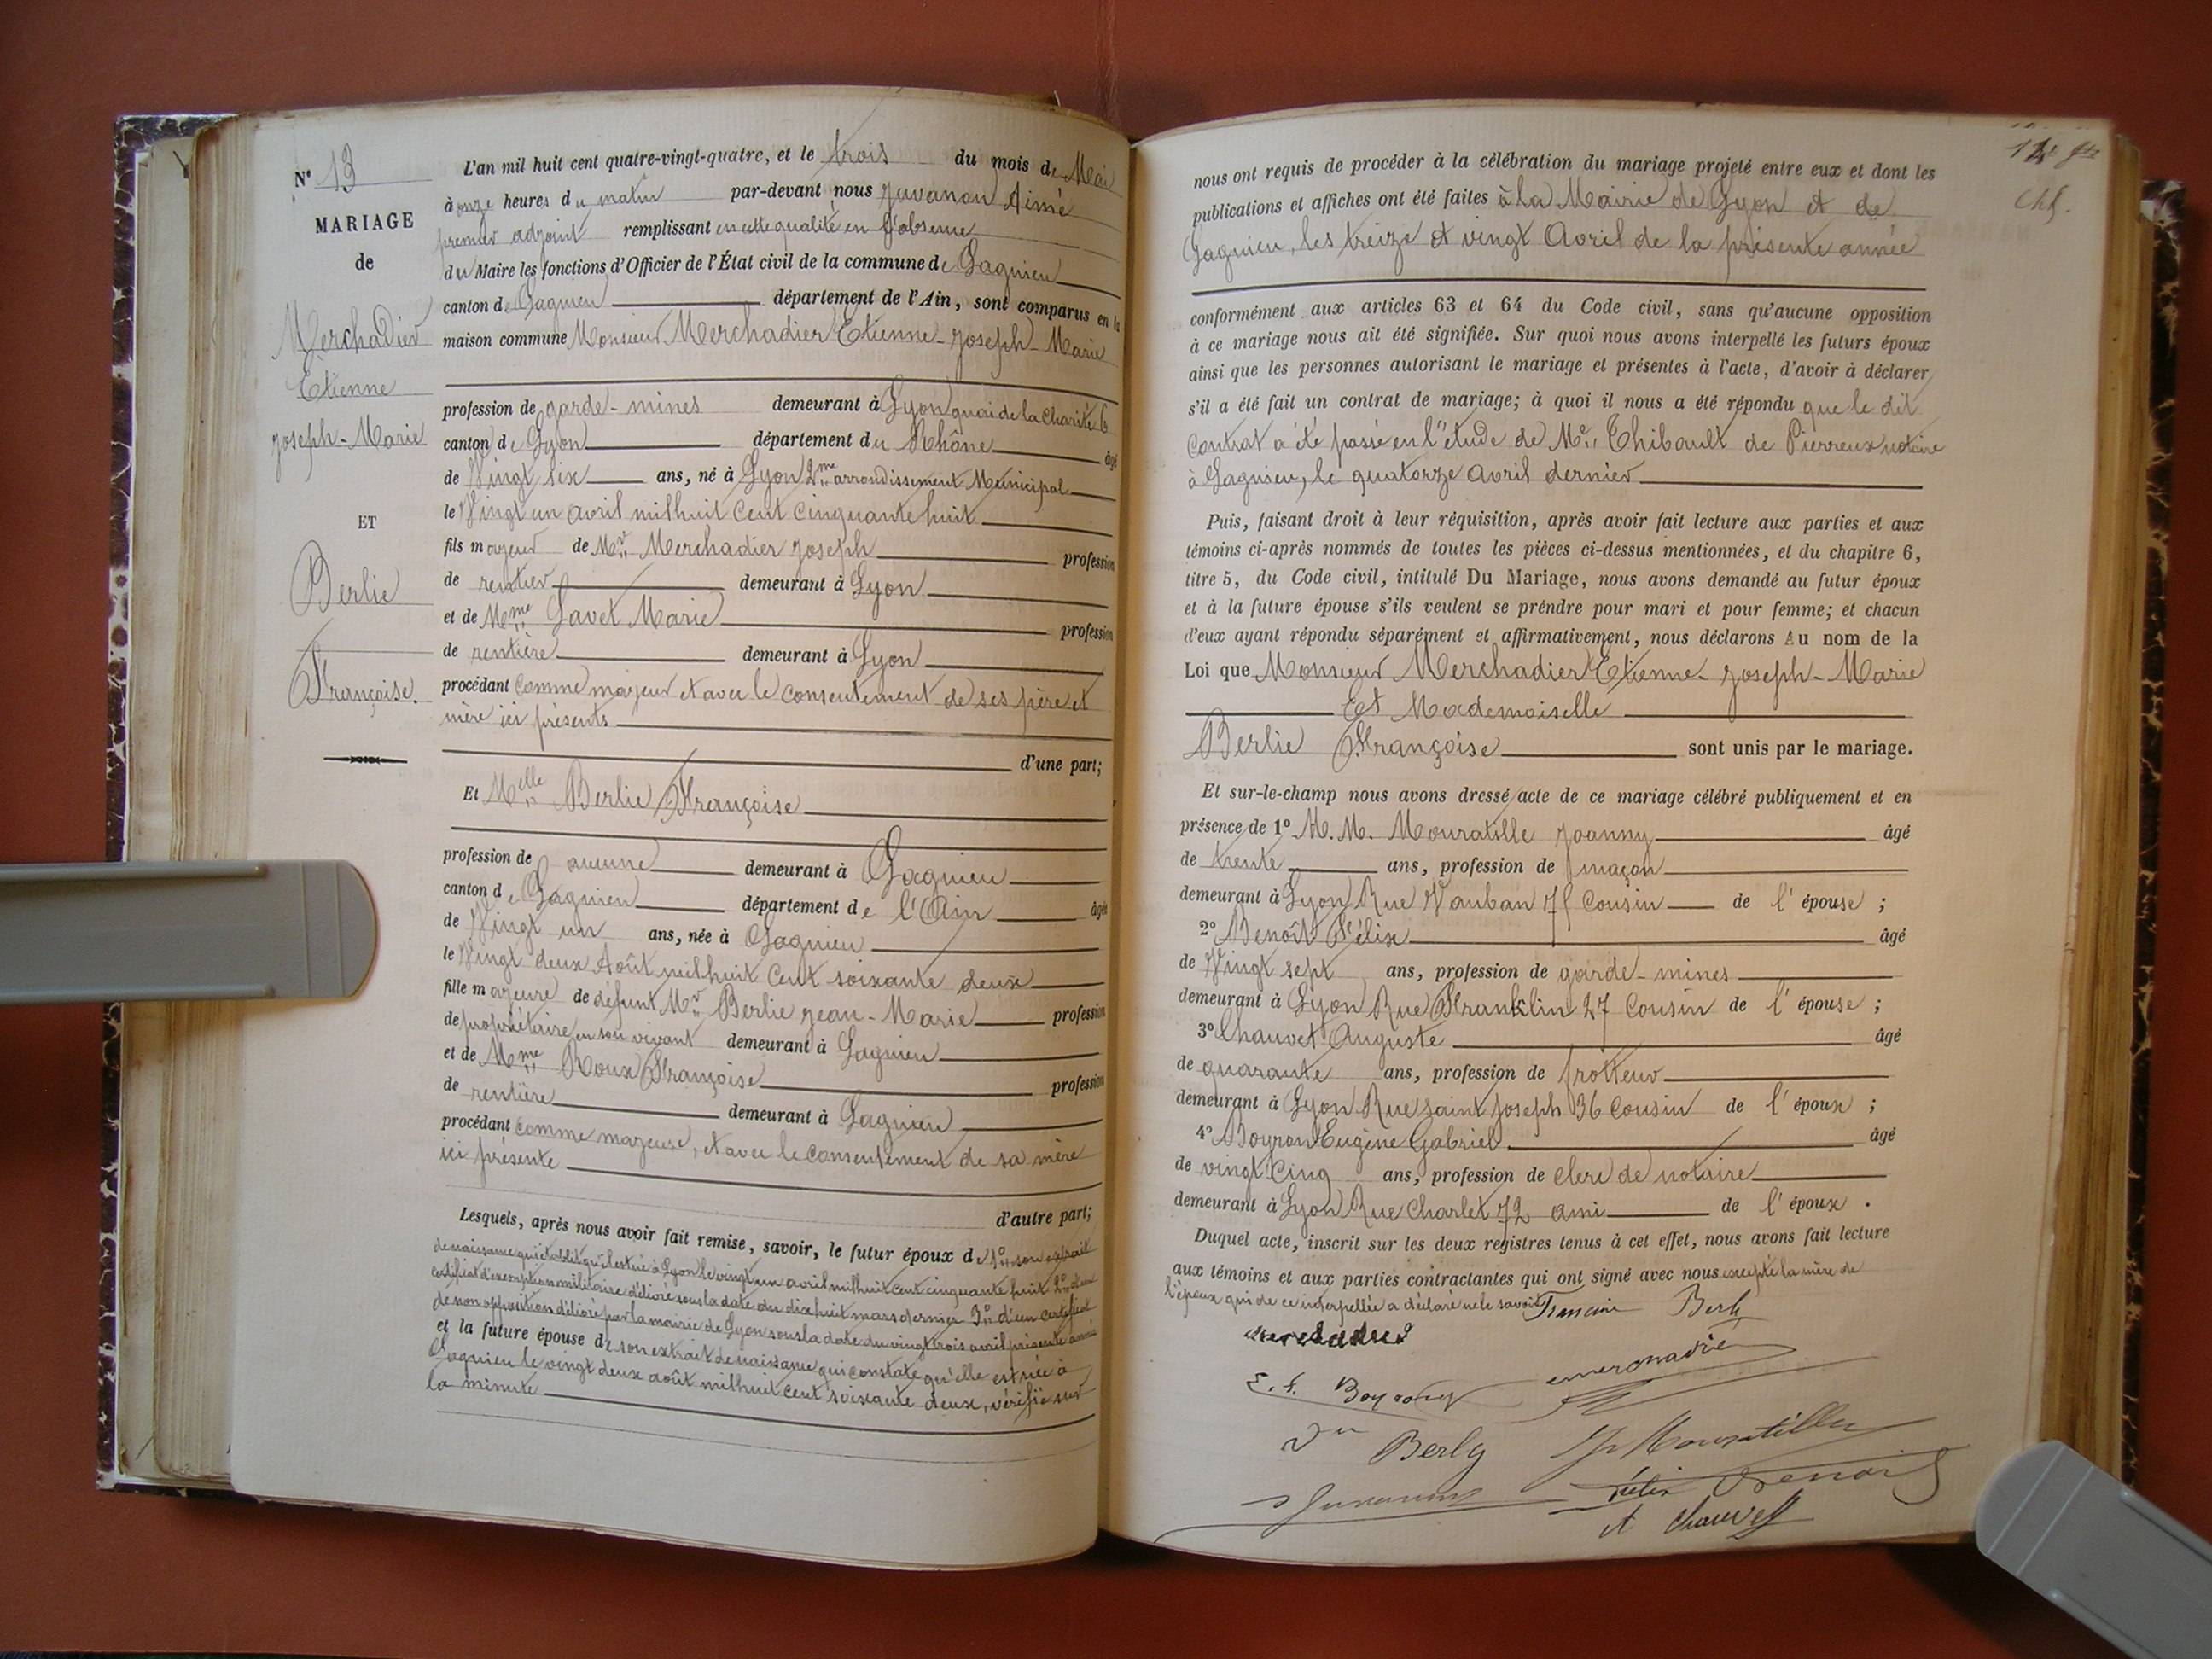 N° 13
MARIAGE
de
Merchadier
Etienne
Joseph-Marie
ET
Berlie
Françoise.
L'an mil huit cent quatre-vingt-quatre, et le trois du mois de Mai
à onze heures du matin par-devant nous Juvanon Aimé
premier adjoint remplissant en cette qualité en l'absence
du Maire les fonctions d'Officier de l'État civil de la commune de Lagnieu
canton de Lagnieu département de l'Ain, sont comparus en la
maison commune Monsieur Merchadier Etienne-Joseph-Marie
profession de garde-mines demeurant à Lyon quai de la Charité 6
canton de Lyon département du Rhône âgé
de Vingt six ans, né à Lyon 2me arrondissement Municipal
le Vingt un avril mil huit Cent Cinquante huit
fils majeur de Mr Merchadier Joseph profession
de rentier demeurant à Lyon
et de Mme Gavet Marie profession
de rentière demeurant à Lyon
procédant comme majeur et avec le consentement de ses père et
mère ici présents
d'une part;
Et Melle Berlie Françoise
profession de aucune demeurant à Lagnieu
canton de Lagnieu département de l'Ain âgée
de Vingt un ans, née à Lagnieu
le Vingt deux Août mil huit Cent soixante deux
fille majeure de défunt Mr Berlie Jean-Marie profession
de propriétaire en son vivant demeurant à Lagnieu
et de Mme Roux Françoise profession
de rentière demeurant à Lagnieu
procédant comme majeure, et avec le consentement de sa mère
ici présente
d'autre part;
Lesquels, après nous avoir fait remise, savoir, le futur époux de 1° son extrait
de naissance qui établit qu'il est né à Lyon le vingt un avril mil huit cent cinquante huit 2° d'un
certificat d'exemption militaire délivré sous la date du dix huit mars dernier 3° d'un certificat
de non opposition délivré par la mairie de Lyon sous la date du vingt trois avril présente année
et la future épouse de son extrait de naissance qui constate qu'elle est née à
Lagnieu le vingt deux août mil huit Cent soixante deux, vérifié sur
la minute
nous ont requis de procéder à la célébration du mariage projeté entre eux et dont les
publications et affiches ont été faites à la Mairie de Lyon et de
Lagnieu, les treize et vingt Avril de la présente année
conformément aux articles 63 et 64 du Code civil, sans qu'aucune opposition
à ce mariage nous ait été signifiée. Sur quoi nous avons interpellé les futurs époux
ainsi que les personnes autorisant le mariage et présentes à l'acte, d'avoir à déclarer
s'il a été fait un contrat de mariage; à quoi il nous a été répondu que le dit
Contrat a été passé en l'étude de Me Thibault de Pierreux notaire
à Lagnieu, le quatorze avril dernier
Puis, faisant droit à leur réquisition, après avoir fait lecture aux parties et aux
témoins ci-après nommés de toutes les pièces ci-dessus mentionnées, et du chapitre 6,
titre 5, du Code civil, intitulé Du Mariage, nous avons demandé au futur époux
et à la future épouse s'ils veulent se préndre pour mari et pour femme; et chacun
d'eux ayant répondu séparément et affirmativement, nous déclarons Au nom de la
Loi que Monsieur Merchadier Etienne-Joseph-Marie
Et Mademoiselle
Berlie Françoise sont unis par le mariage.
Et sur-le-champ nous avons dressé acte de ce mariage célébré publiquement et en
présence de 1° M.M. Mouratille Joanny âgé
de trente ans, profession de maçon
demeurant à Lyon Rue Vauban 75 Cousin de l'épouse ;
2° Benoît Félix âgé
de Vingt sept ans, profession de garde-mines
demeurant à Lyon Rue Franklin 27 Cousin de l'épouse ;
3° Chauvet Auguste âgé
de quarante ans, profession de frotteur
demeurant à Lyon Rue Saint Joseph 36 Cousin de l'époux ;
4° Boyron Eugène Gabriel âgé
de vingt Cinq ans, profession de clerc de notaire
demeurant à Lyon Rue Charlet 72 ami de l'époux .
Duquel acte, inscrit sur les deux registres tenus à cet effet, nous avons fait lecture
aux témoins et aux parties contractantes qui ont signé avec nous excepté la mère de
l'époux qui de ce interpellée a déclaré ne le savoir
Berly
E. G. Boyron
Berly
Mouratille
Juvanon
Félix Benoit
A Chauvet